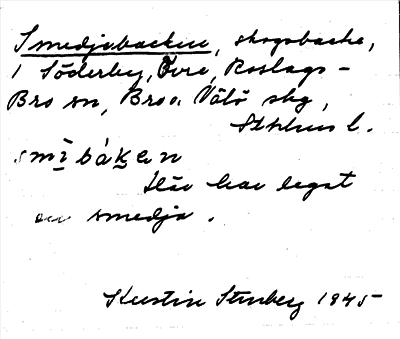 Smedjebacken, skogsbacke,
i Söderby, Övre, Roslags-
Bro sn, Bro o. Vätö skg,
Sthlms l.
smì báken
Här har legat
en smedja.
Kerstin Stenberg 1945